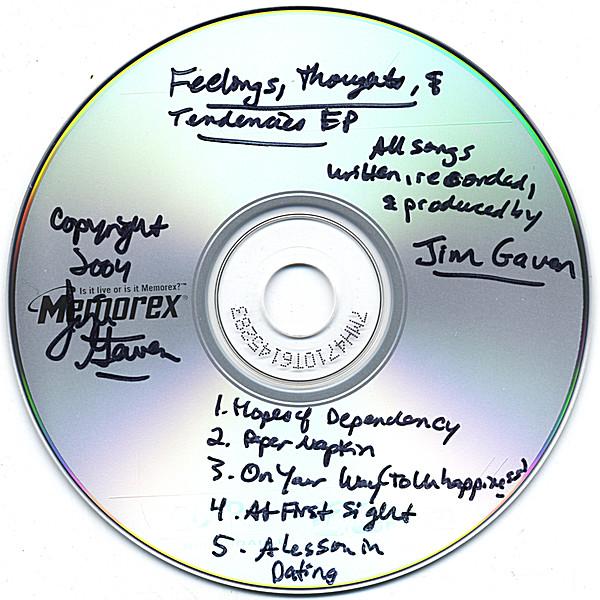 Feelings, Thoughts, &
Tendencies EP
All songs
written, recorded,
& produced by
Jim Gaven
Copyright
2004
Is it live or is it Memorex?™
Memorex®
Jim
Gaven
7MH4710T6145283
1. Hopes of Dependency
2. Paper Napkin
3. On Your Way To Unhappiness
4. At First Sight
5. A Lesson in
Dating